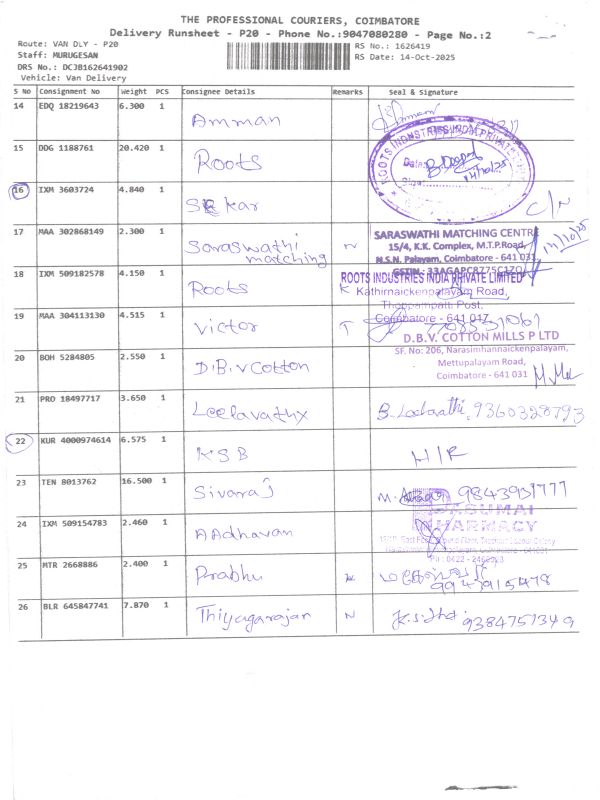 THE PROFESSIONAL COURIERS, COIMBATORE
Delivery Runsheet - P20 - Phone No.:9047080280 - Page No.:2
Route: VAN DLY - P20
RS No.: 1626419
Staff: MURUGESAN
RS Date: 14-Oct-2025
DRS No.: DCJB162641902
Vehicle: Van Delivery
S No Consignment No Weight PCS Consignee Details Remarks Seal & Signature
14 EDQ 18219643 6.300 1 Amman
15 DDG 1188761 20.420 1 Roots
ROOTS INDUSTRIES INDIA PRIVATE
Date: 14/10/25
16 IXM 3603724 4.840 1 Sekar C/N
17 MAA 302868149 2.300 1 Saraswathi matching N
SARASWATHI MATCHING CENTRE
15/4, K.K. Complex, M.T.P.Road,
N.S.N. Palayam, Coimbatore - 641 031
14/10/25
18 IXM 509182578 4.150 1 Roots K
ROOTS INDUSTRIES INDIA PRIVATE LIMITED
Kathirnaickenpalayam Road,
Thoppampatti Post,
Coimbatore - 641 017
19 MAA 304113130 4.515 1 Victor T
D.B.V. COTTON MILLS P LTD
SF. No: 206, Narasimhannaickenpalayam,
Mettupalayam Road,
Coimbatore - 641 031
20 BOH 5284805 2.550 1 D.B.V Cotton
21 PRO 18497717 3.650 1 Leelavathy 9360328793
22 KUR 4000974614 6.575 1 KSB H/R
23 TEN 8013762 16.500 1 Sivaraj
24 IXM 509154783 2.460 1 AAdhavan
PHARMACY
25 MTR 2668886 2.400 1 Prabhu
26 BLR 645847741 7.870 1 Thiyagarajan N 9384757349